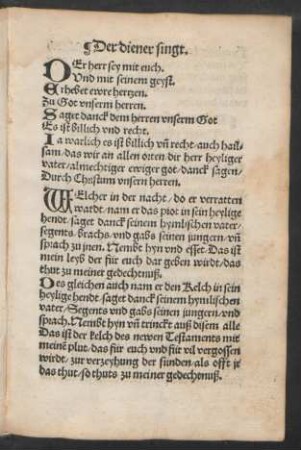 ¶Der diener singt.
DEr herr sey mit euch.
Vnd mit seinem geyst.
Erhebet ewre hertzen.
Zu Got vnserm herren.
Saget danck dem herren vnserm Got
Es ist billich vnd recht.
Ja warlich es ist billich vñ recht auch hail-
sam/das wir an allen orten dir herr heyliger
vater/almechtiger ewiger got/danck sagen/
Durch Christum vnsern herren.
WElcher in der nacht/do er verratten
wardt/nam er das prot in sein heylige
hendt/saget danck seinem hymlischen vater/
segents/brachs/vnd gabs seinen jungern/vñ
sprach zu jnen. Nembt hyn vnd esset/Das ist
mein leyb der für euch dar geben wirdt/das
thut zu meiner gedechtnuß.
Des gleichen auch nam er den Kelch in sein
heylige hende/saget danck seinem hymlischen
vater/Segents vnd gabs seinen jungern/vnd
sprach. Nembt hyn vñ trinckt auß disem alle
Das ist der kelch des newen Testaments mit
meinē plut/das für euch vnd für vil vergossen
wirdt/zur verzeyhung der sunden/als offt jr
das thut/so thuts zu meiner gedechtnuß.